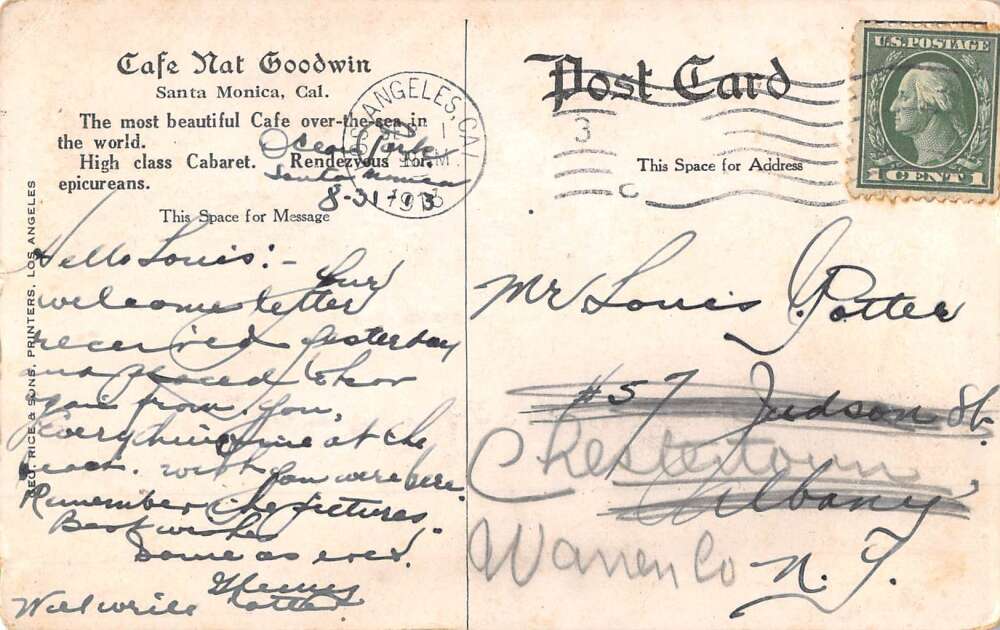 Cafe Nat Goodwin
Santa Monica, Cal.
The most beautiful Cafe over-the-sea in
the world.
High class Cabaret. Rendezvous for
epicureans.
Ocean Park
Santa Monica
8-31-13
This Space for Message
Hello Louis:-
Your
welcome letter
received yesterday
and
from you,
Everything fine at the
beach. wish you were here.
Remember the pictures.
Best wishes
Same as ever.
Potter
Will write
GEO. RICE & SONS, PRINTERS, LOS ANGELES
LOS ANGELES, CAL.
SEP 1
1913
Post Card
3
This Space for Address
U.S. POSTAGE
1 CENT 1
Mr Louis J. Potter
#57 Judson St.
Chestertown,
Albany
Warren Co N.Y.